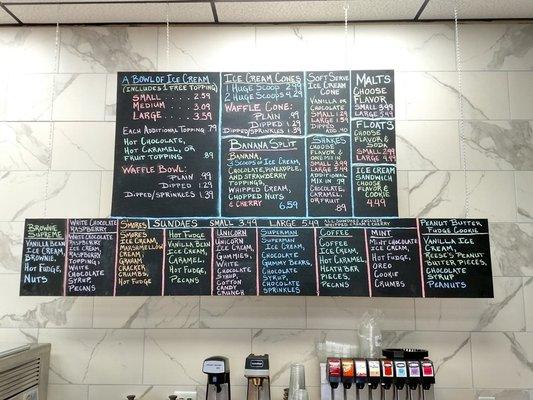 A Bowl of Ice Cream
(Includes 1 Free Topping)
Small ..... 2.59
Medium ..... 3.09
Large ..... 3.59
Each Additional Topping .79
Hot Chocolate,
Hot Caramel, or
Fruit Toppings .89
Waffle Bowl:
Plain .99
Dipped 1.29
Dipped/Sprinkles 1.39
Ice Cream Cones
1 Huge Scoop 2.99
2 Huge Scoops 4.29
Waffle Cone:
Plain .99
Dipped 1.29
Dipped/Sprinkles 1.39
Banana Split
Banana,
3 Scoops of Ice Cream,
Chocolate, Pineapple,
and Strawberry
Toppings,
Whipped Cream,
Chopped Nuts
& Cherry 6.59
Soft Serve
Ice Cream
Cone
Vanilla or
Chocolate
Small
Large
Dipped
Add .40
Shakes
Choose
Flavor &
One Mix in
Small
Large
Additional
Mix in .79
Chocolate,
Caramel,
or Fruit
.89
Malts
Choose
Flavor
Small 3.99
Large 4.99
Floats
Choose
Flavor
& Soda
Small 2.99
Large 4.49
Ice Cream
Sandwich
Choose
Flavor
& Cookie
4.49
Sundaes Small 3.49 Large 5.49
Brownie
Supreme
Vanilla Bean
Ice Cream,
Brownie,
Hot Fudge,
Nuts
White Chocolate
Raspberry
White Chocolate
Raspberry
Ice Cream
Raspberry
Topping
White
Chocolate
Syrup
Pecans
Smores
Smores
Ice Cream
Marshmallow
Cream
Graham
Cracker
Crumbs
Hot Fudge
Hot Fudge
Vanilla Bean
Ice Cream,
Caramel,
Hot Fudge,
Pecans
Unicorn
Unicorn
Ice Cream,
White
Chocolate
Syrup,
Cotton
Candy
Crunch
Superman
Superman
Ice Cream,
Chocolate
Gummy Bears,
Chocolate
Syrup
Chocolate
Sprinkles
Coffee
Coffee
Ice Cream,
Hot Caramel
Heath Bar
Pieces,
Pecans
Mint
Mint Chocolate
Ice Cream,
Hot Fudge
Oreo
Cookie
Crumbs
Peanut Butter
Fudge Cookie
Vanilla Ice
Cream,
Reese's Peanut
Butter Pieces,
Chocolate
Syrup
Peanuts